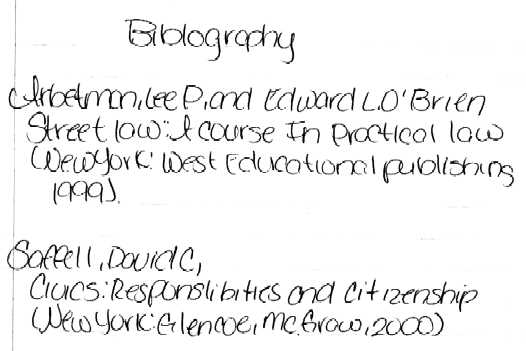 Biblography
Arbetman, Lee P, and Edward L. O'Brien
Street law: A course In Practical law
(New York: West Educational publishing
1999).
Saffell, David C,
Civics: Responslibities and citizenship
(New York: Glencoe, Mc. Graw, 2000)